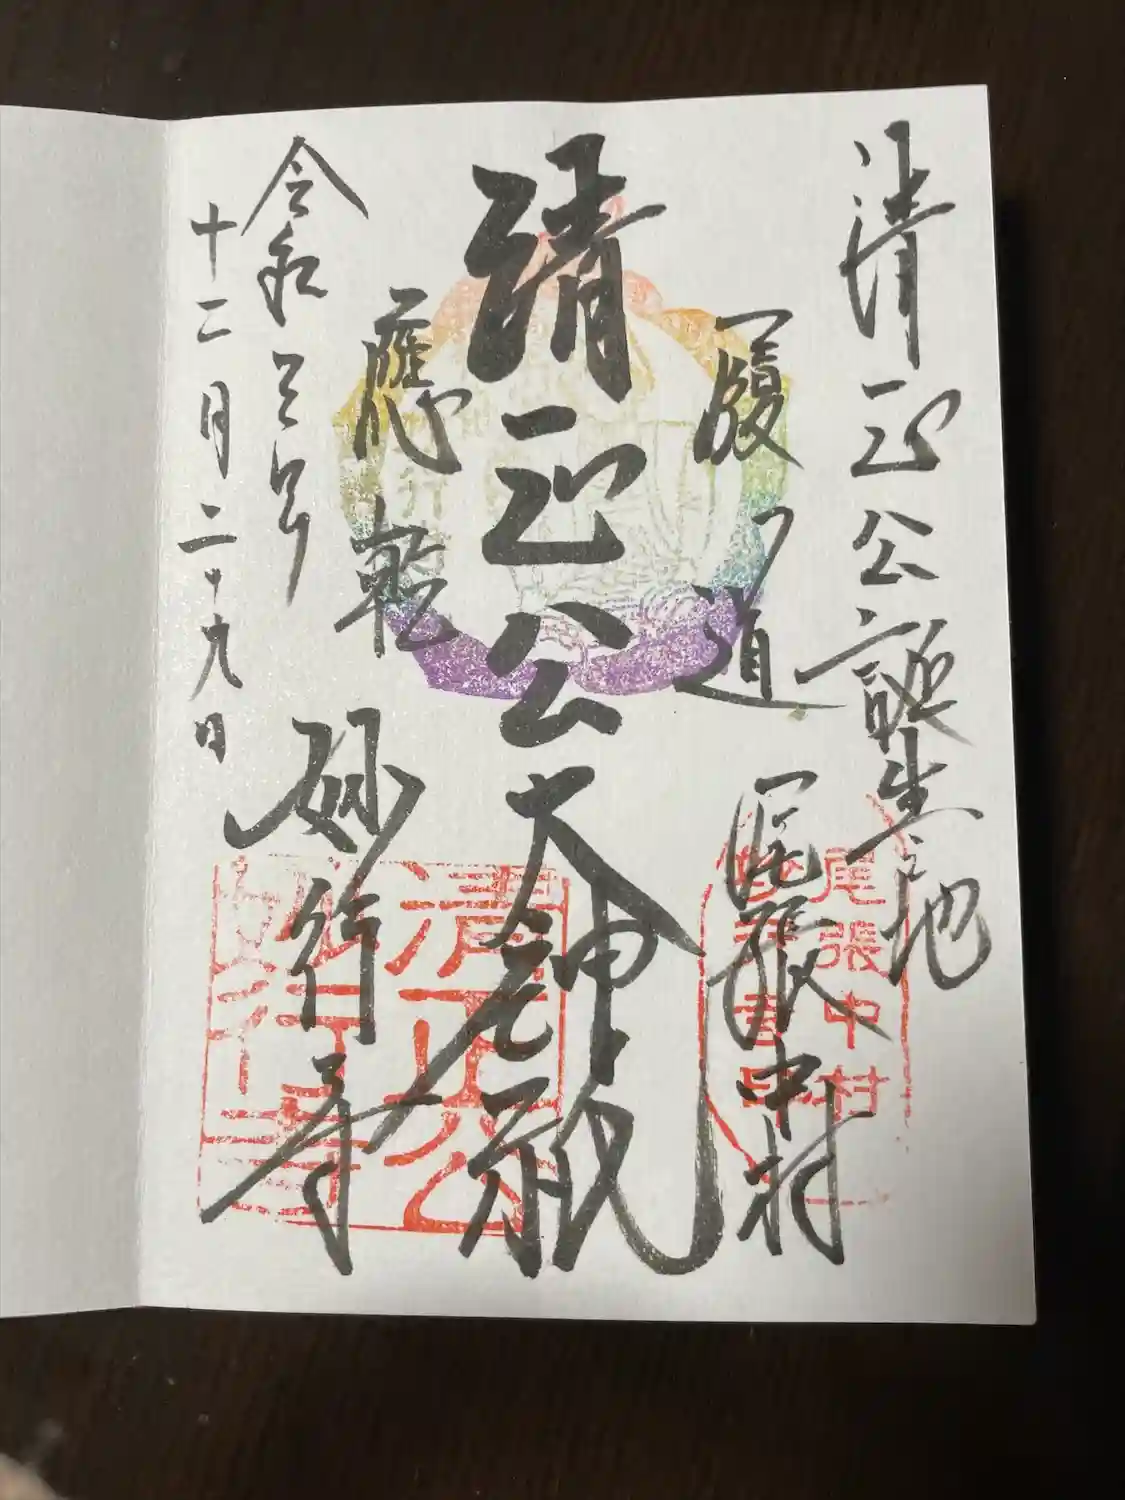 清正公誕生之地
履道
尾張中村
尾張中村
清正公大神祇
清正公
妙行寺
應乾
妙行寺
令和三年
十二月二十九日